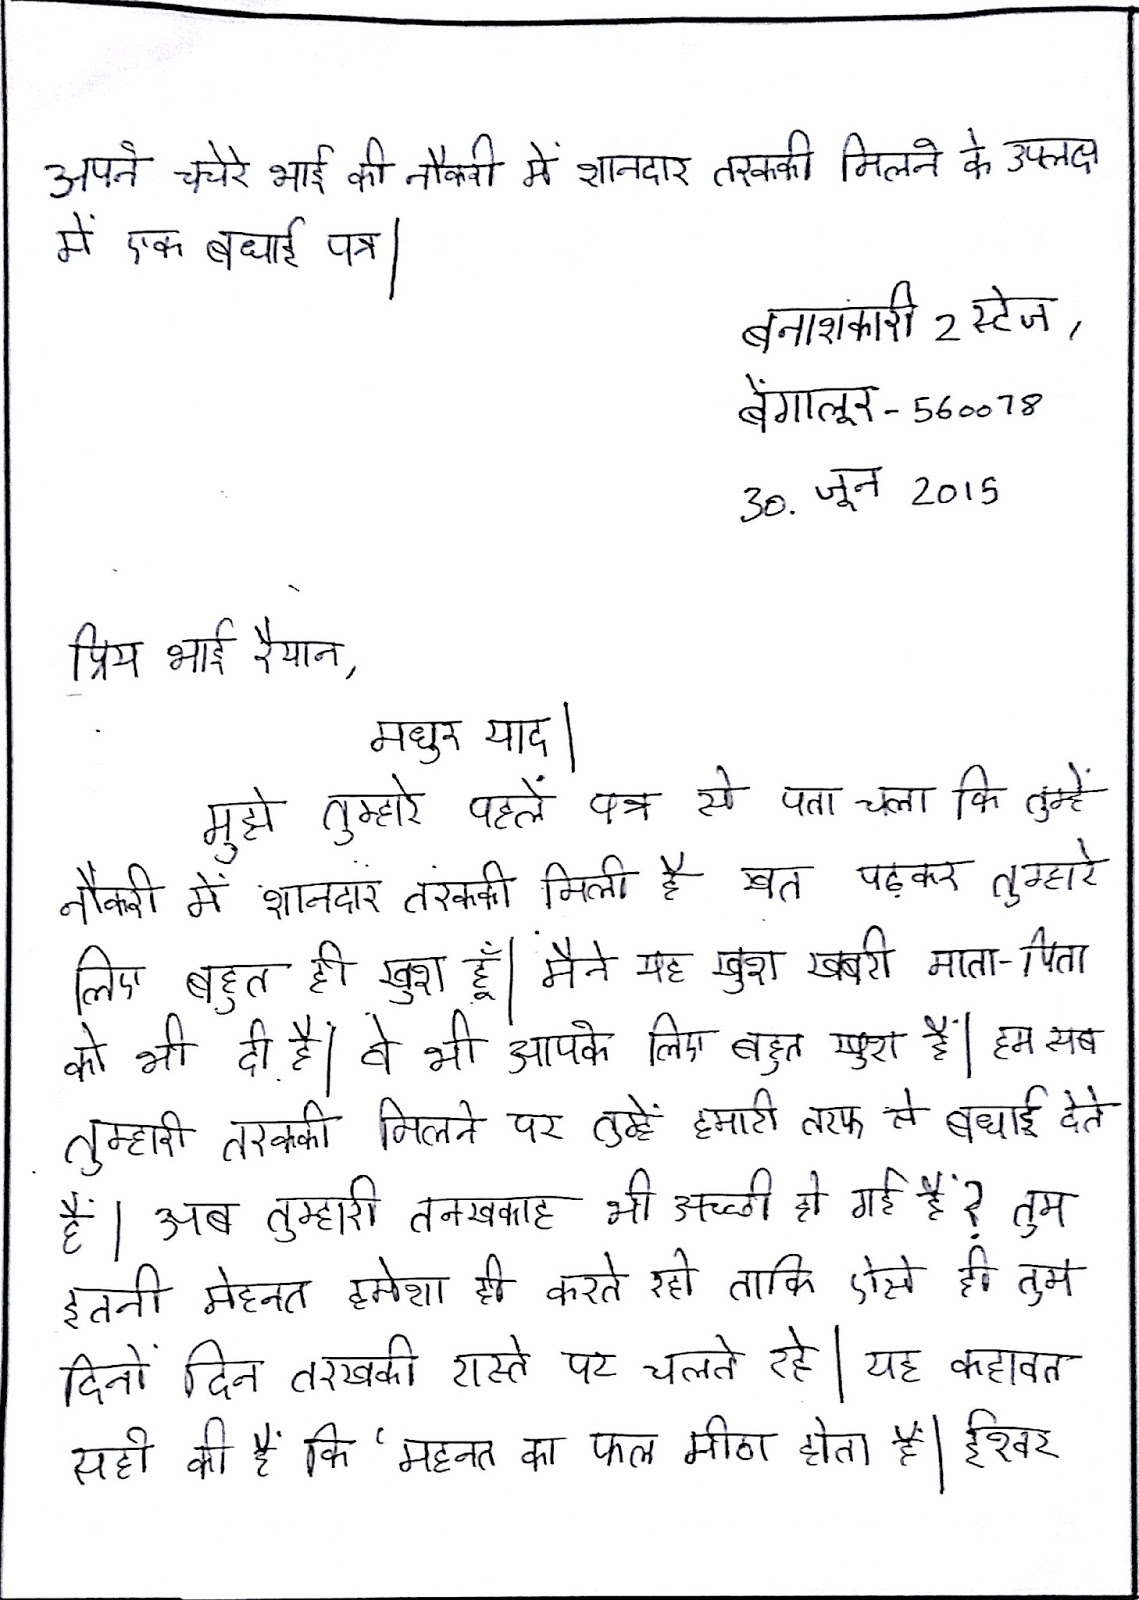 अपने चचेरे भाई की नौकरी में शानदार तरक्की मिलने के उपलक्ष
में एक बधाई पत्र|
बनाशंकारी 2 स्टेज,
बेंगालूर - 560078
30. जून 2015
प्रिय भाई रैयान,
मधुर याद|
मुझे तुम्हारे पहले पत्र से पता चला कि तुम्हें
नौकरी में शानदार तरक्की मिली है खत पढ़कर तुम्हारे
लिए बहुत ही खुश हूँ| मैने यह खुश खबरी माता-पिता
को भी दी है| वे भी आपके लिए बहुत खुश हैं| हम सब
तुम्हारी तरक्की मिलने पर तुम्हें हमारी तरफ से बधाई देते
हैं| अब तुम्हारी तनखकाह भी अच्छी हो गई हैं? तुम
इतनी मेहनत हमेशा ही करते रहो ताकि ऐसे ही तुम
दिनों दिन तरखकी रास्ते पर चलते रहे| यह कहावत
सही की हैं कि ‘महनत का फल मीठा होता हैं| ईश्वर